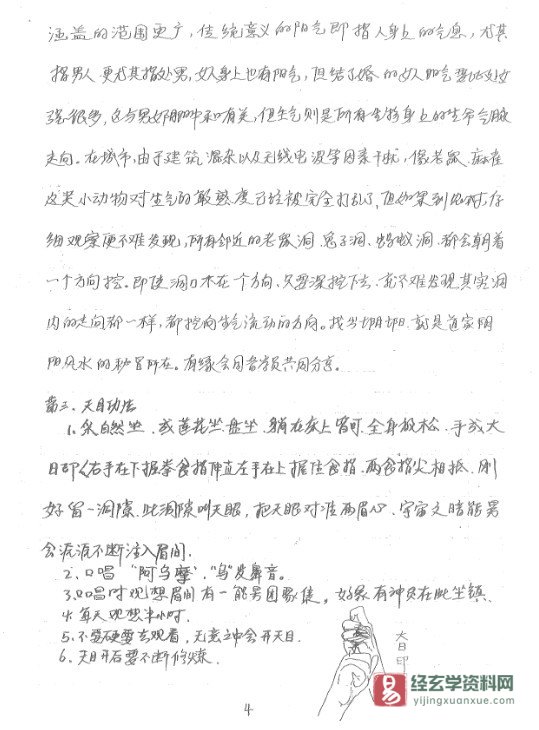 涵盖的范围更广，传统意义的阳气即指人身上的气息，尤其
指男人更尤其指处男，女人身上也有阳气，但结了婚的女人阳气要比处女
强很多，这与男奸阴中和有关，但生气则是所有生物身上的生命气脉
走向。在城市，由于建筑混杂以及无线电波等因素干扰，像老鼠、麻雀
这类小动物对生气的敏感度已经被完全打乱了，但如果到乡村，仔
细观察便不难发现，所有邻近的老鼠洞、兔子洞、蚂蚁洞都会朝着
一个方向挖。即使洞口不在一个方向，只要深挖下去，就不难发现其实洞
内的走向都一样，都挖向生气流动的方向。找出阴阳，就是道家阴
阳风水的秘旨所在。有缘会同各学员共同分享。
篇三、天目功法
1.采自然坐、或莲花坐、盘坐、躺在床上皆可，全身放松，手成大
日印（右手在下握拳食指伸直左手在上握住食指，两食指尖相抵，刚
好留一洞隙，此洞隙叫天眼，把天眼对准两眉心，宇宙之暗能量
会源源不断注入眉间。
2、口唱“阿乌摩”，“乌”发鼻音。
3、口唱时观想眉间有一能量团聚集，好象有神灵在此坐镇
4、每天观想半小时
5、不要硬要去观看，无意之中会开天目
6、天目开后要不断修炼
大日印
4
易 经玄学资料网
yijingxuanxue.com